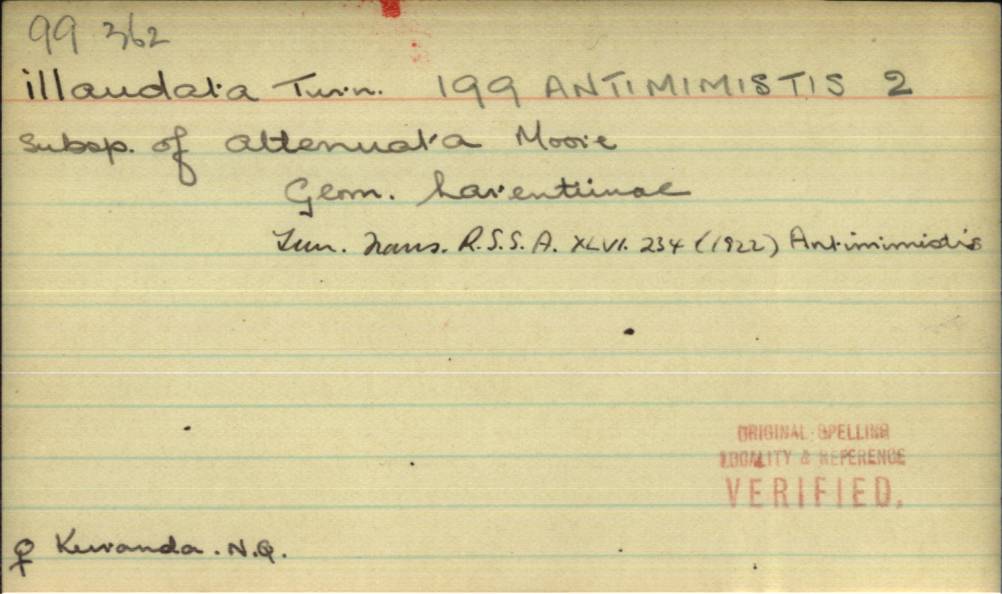 99 362
illaudata Turn. 199 ANTIMIMISTIS 2
Subsp. of attenuata Moore
Geom. Larentiinae
Tur. Trans. R.S.S.A. XLVI. 234 (1922) Antimimistis
ORIGINAL SPELLING
LOCALITY & REFERENCE
VERIFIED.
♀ Kuranda. N.Q.